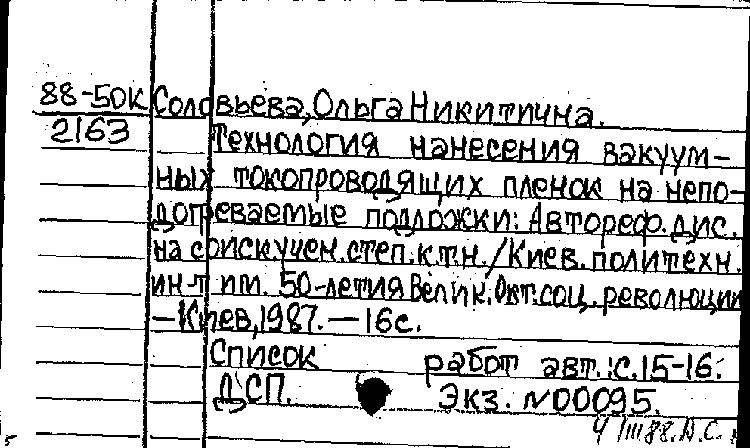 88-50К Соловьева, Ольга Никитична.
2163
Технология нанесения вакуум-
ных токопроводящих пленок на непо-
догреваемые подложки: Автореф. дис.
на соиск. учен. степ. к.т.н. / Киев. политехн.
ин-т им. 50-летия Велик. Окт. соц. революции
– Киев, 1987. – 16с.
Список работ авт.: с. 15-16.
ДСП. Экз. №00095.
4/III 88. А.С.